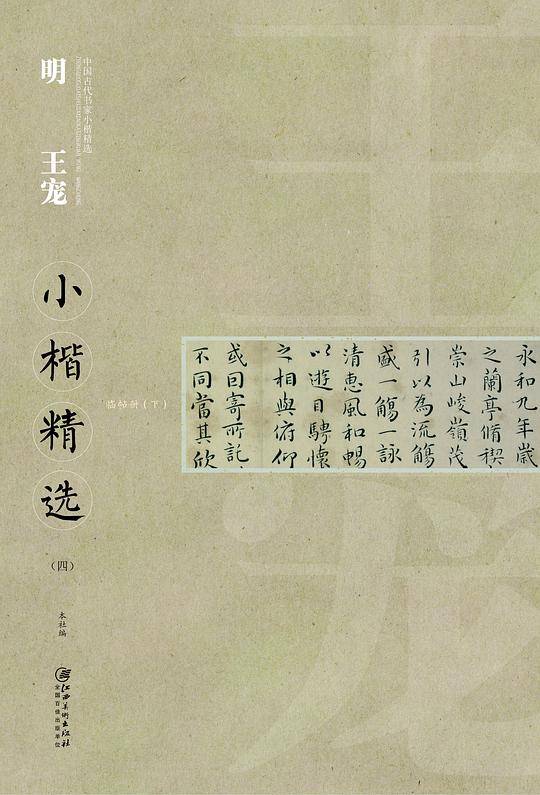 明 王宠
中国古代书家小楷精选
小楷精选
临帖册(下)
(四)
本社编
江西美术出版社
全国百佳出版单位
永和九年歲
之蘭亭脩稧
崇山峻嶺茂
引以為流觴
盛一觴一詠
清惠風和暢
以遊目騁懷
之相與俯仰
或因寄所託
不同當其欣